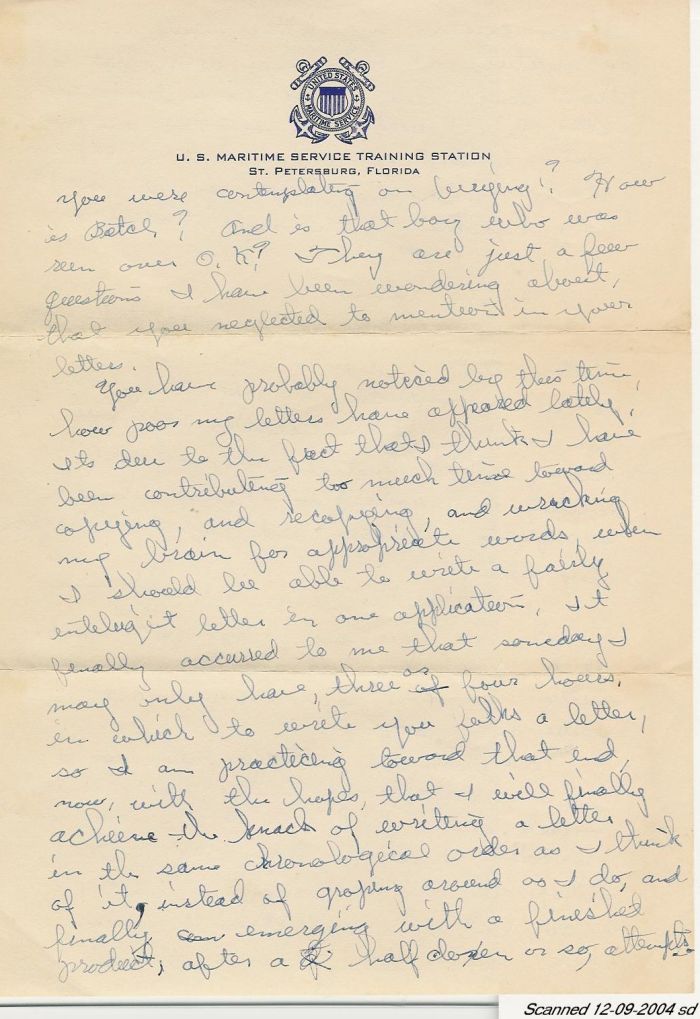 UNITED STATES
MARITIME SERVICE
U. S. MARITIME SERVICE TRAINING STATION
ST. PETERSBURG, FLORIDA
you were contemplating on buying? How
is Butch? And is that boy who was
seen over O.K? They are just a few
questions I have been wondering about,
that you neglected to mention in your
letter.
You have probably noticed by this time,
how poor my letters have appeared lately,
its due to the fact that I think I have
been contributing too much time toward
copying, and recopying, and wracking
my brain for appropriate words, when
I should be able to write a fairly
intelegent letter in one application, It
finally accurred to me that someday I
may only have, three or four hours,
in which to write you folks a letter,
so I am practicing toward that end,
now, with the hopes, that I will finally
achieve the knack of writing a letter
in the same chronological order as I think
of it, instead of groping around as I do, and
finally emerging with a finished
product, after a half dozen or so, attempts.
Scanned 12-09-2004 sd